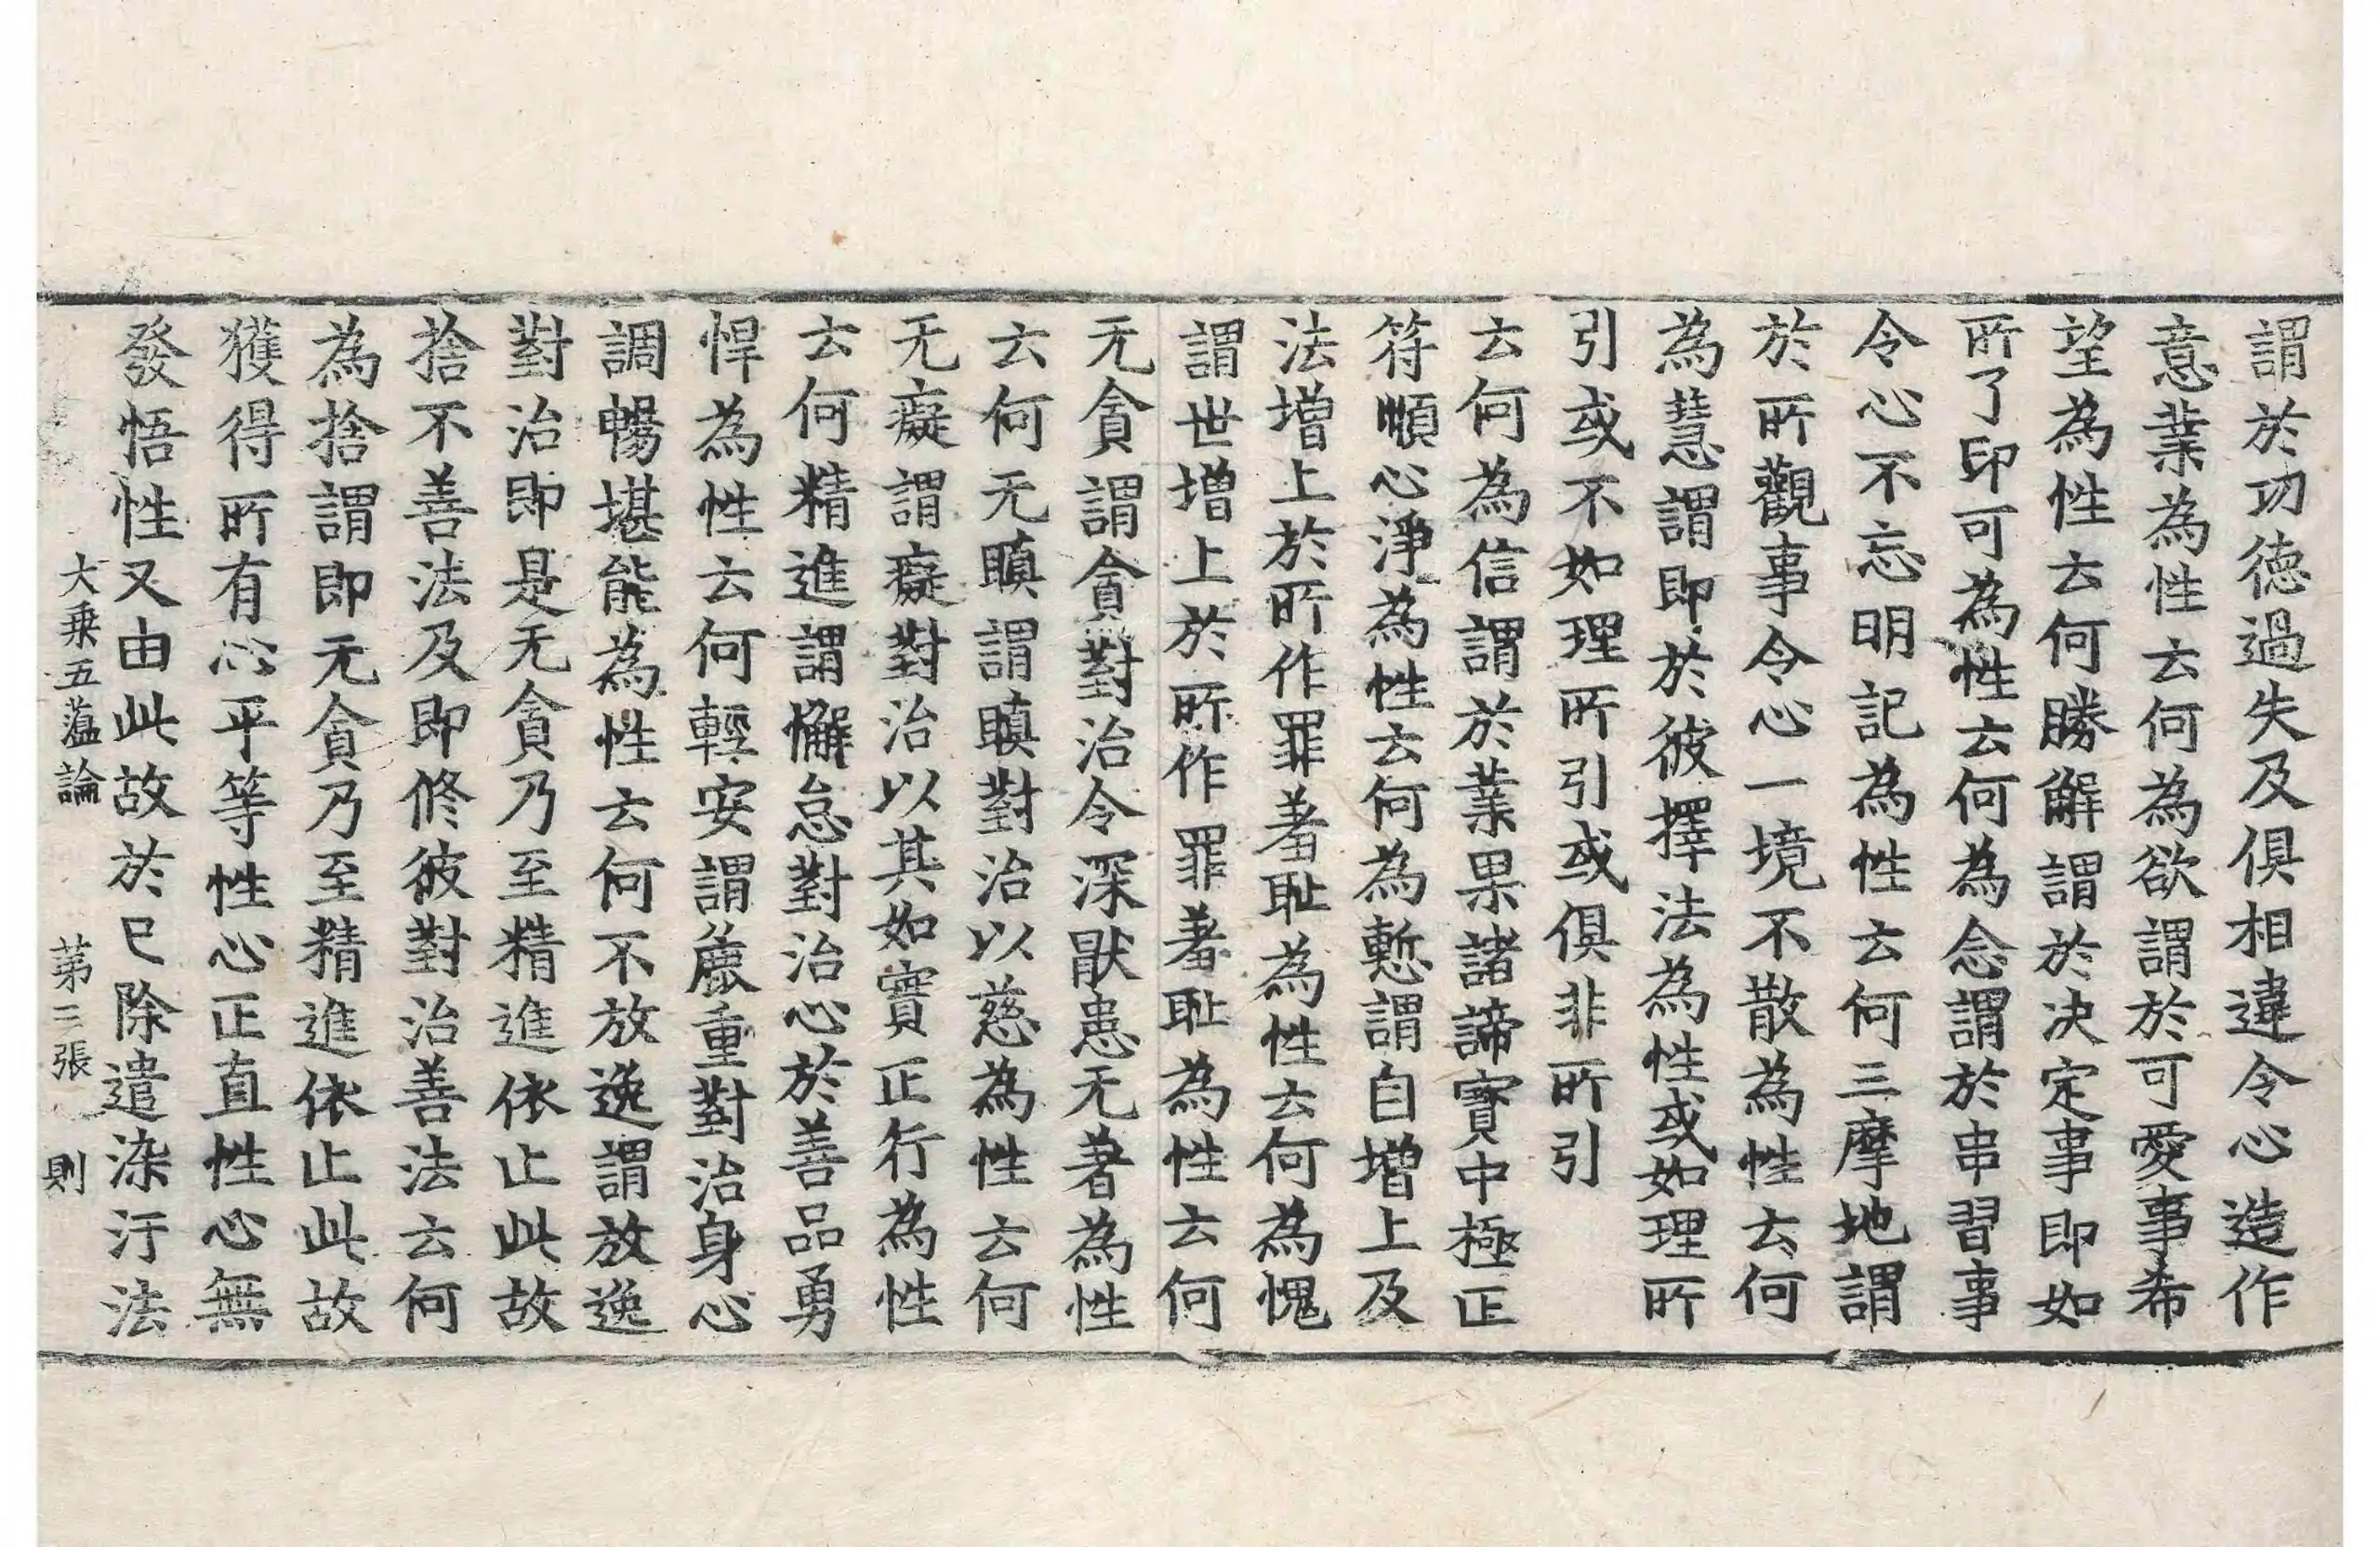 謂於功德過失及俱相違令心造作
意業為性云何為欲謂於可愛事希
望為性云何勝解謂於決定事即如
所了印可為性云何為念謂於串習事
令心不忘明記為性云何三摩地謂
於所觀事令心一境不散為性云何
為慧謂即於彼擇法為性或如理所
引或不如理所引或俱非所引
云何為信謂於業果諸諦實中極正
符順心淨為性云何為慙謂自增上及
法增上於所作罪羞耻為性云何為愧
謂世增上於所作罪羞耻為性云何
无貪謂貪對治令深猒患无著為性
云何无瞋謂瞋對治以慈為性云何
无癡謂癡對治以其如實正行為性
云何精進謂懈怠對治心於善品勇
悍為性云何輕安謂麤重對治身心
調暢堪能為性云何不放逸謂放逸
對治即是无貪乃至精進依止此故
捨不善法及即修彼對治善法云何
為捨謂即无貪乃至精進依止此故
獲得所有心平等性心正直性心無
發悟性又由此故於已除遣染汙法
大乘五蘊論 第三張 則